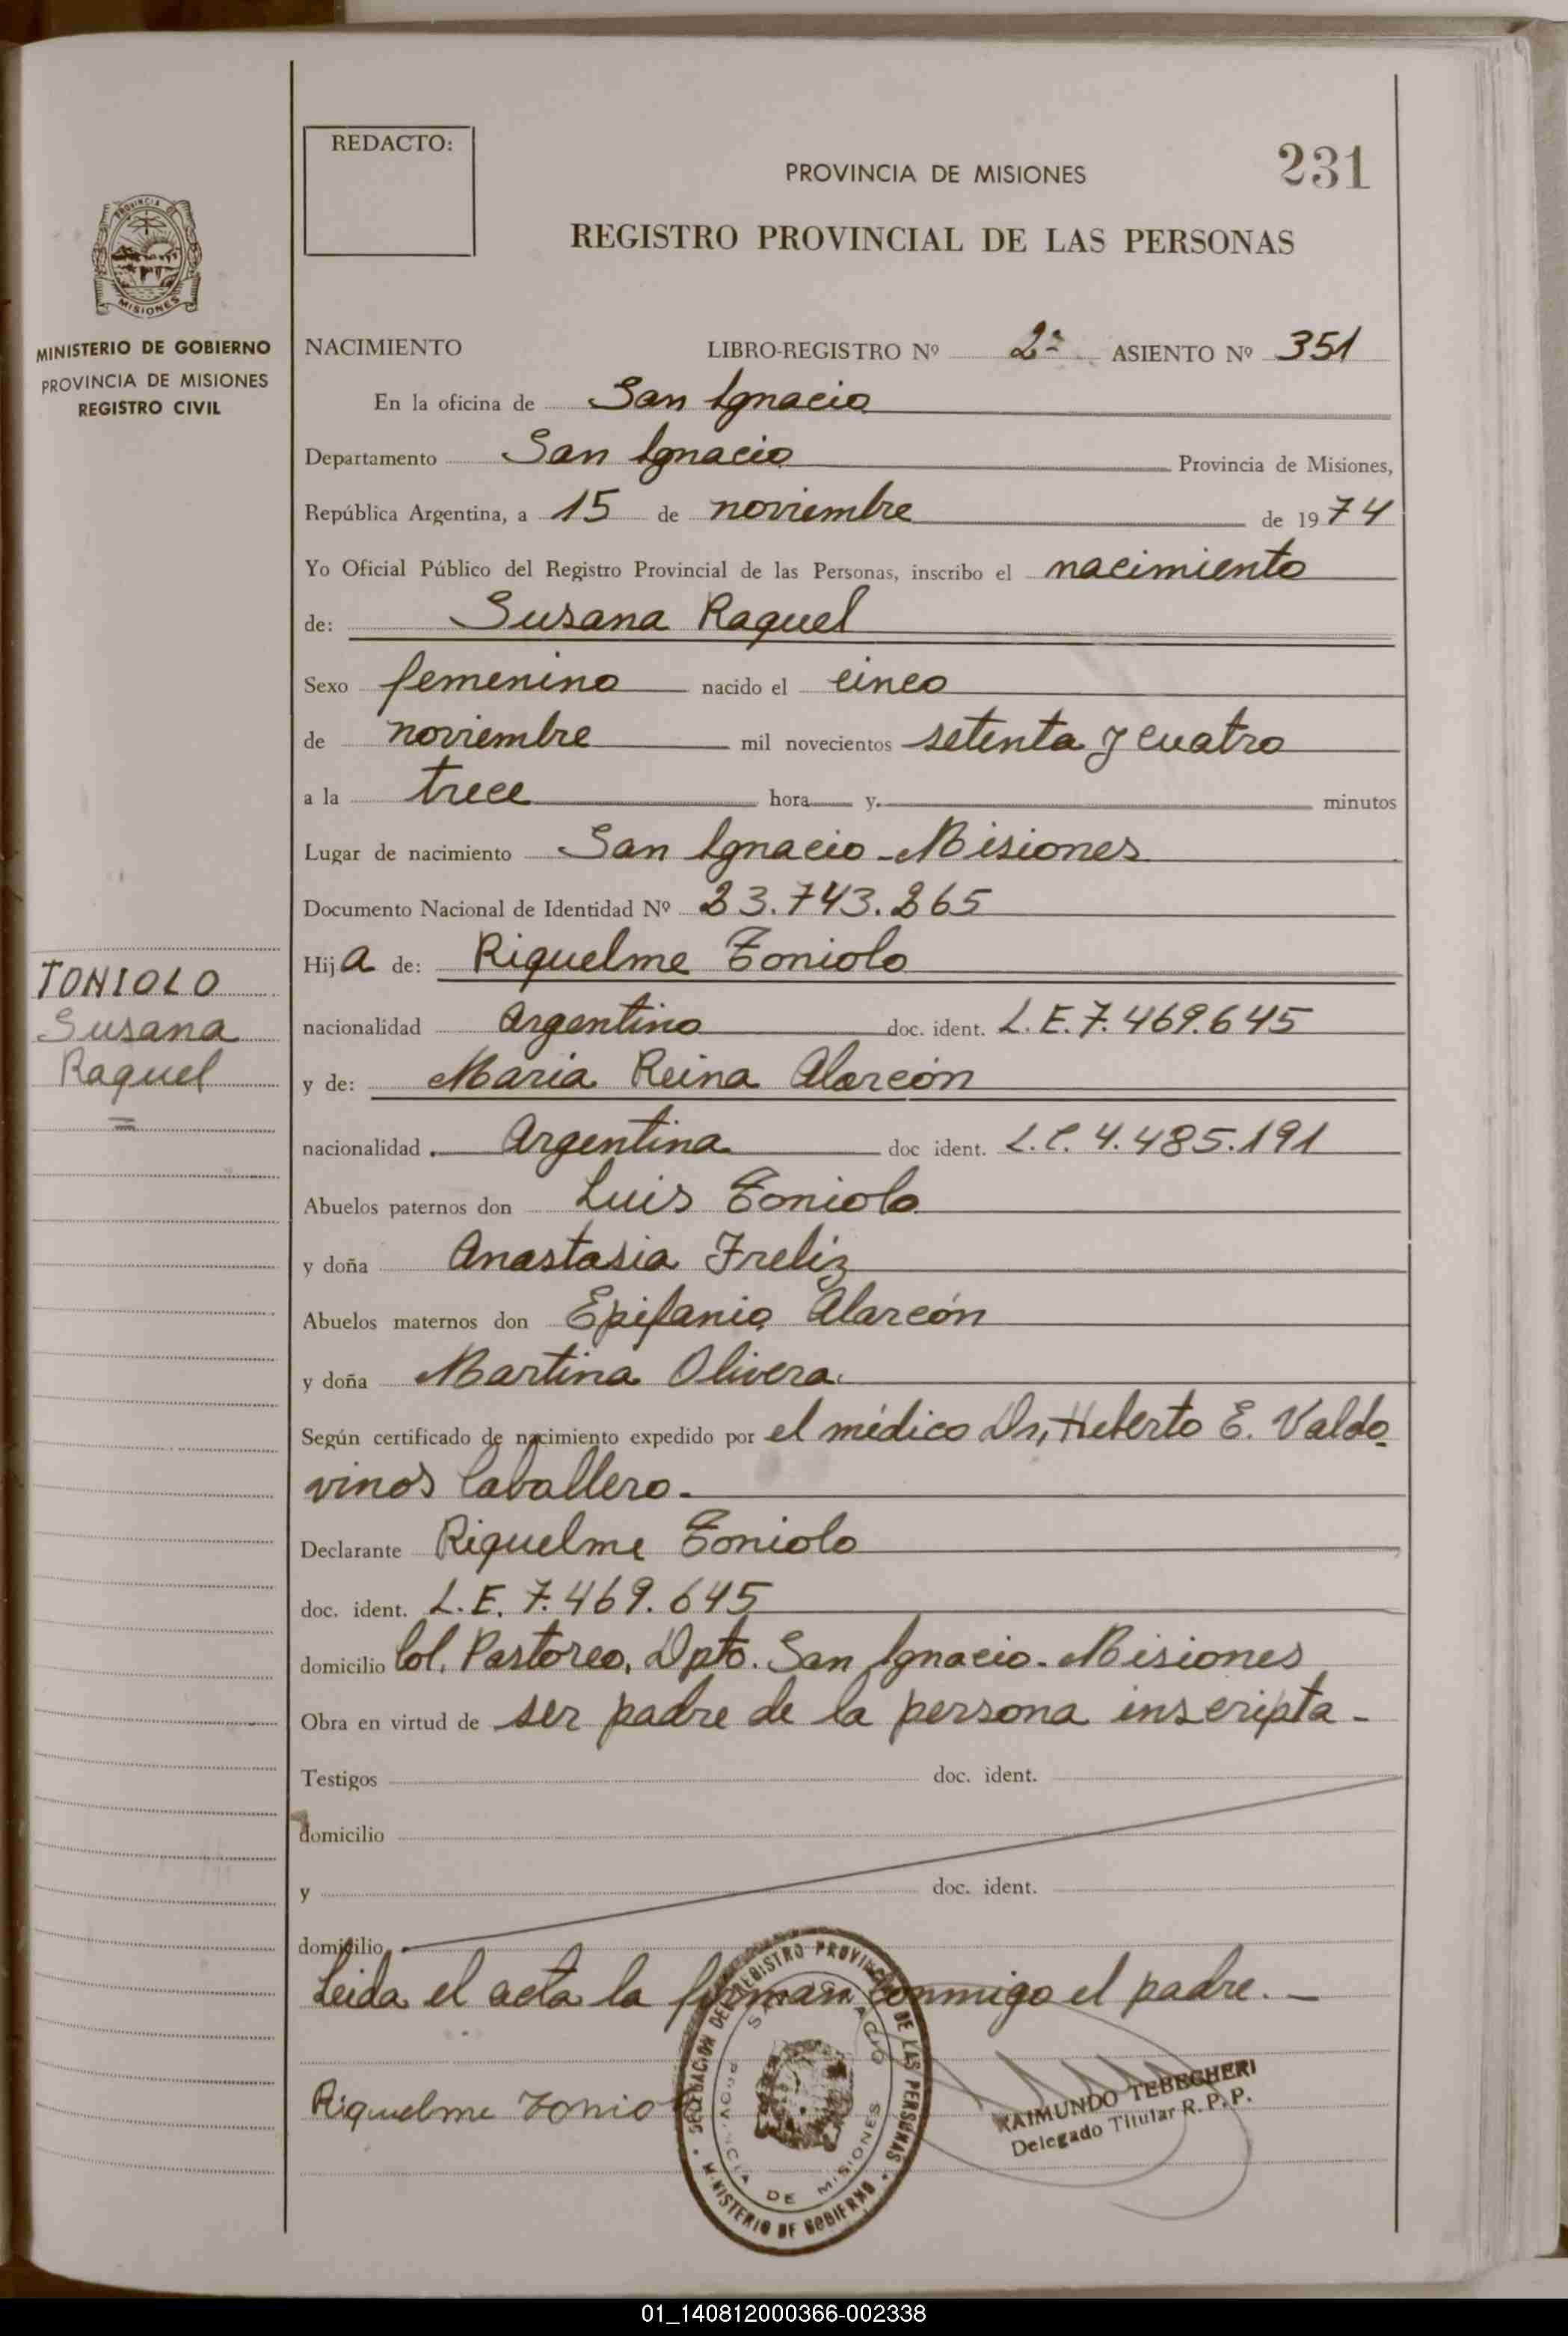 REDACTO:
PROVINCIA DE MISIONES
231
REGISTRO PROVINCIAL DE LAS PERSONAS
PROVINCIA DE
MISIONES
MINISTERIO DE GOBIERNO
PROVINCIA DE MISIONES
REGISTRO CIVIL
NACIMIENTO LIBRO-REGISTRO Nº 2º ASIENTO Nº 351
En la oficina de San Ignacio
Departamento San Ignacio Provincia de Misiones,
República Argentina, a 15 de noviembre de 1974
Yo Oficial Público del Registro Provincial de las Personas, inscribo el nacimiento
de: Susana Raquel
Sexo femenino nacido el cinco
de noviembre mil novecientos setenta y cuatro
a la trece hora y minutos
Lugar de nacimiento San Ignacio-Misiones
Documento Nacional de Identidad Nº 23.743.265
Hija de: Riquelme Toniolo
nacionalidad Argentino doc. ident. L.E. 7.469.645
y de: Maria Reina Alarcón
nacionalidad Argentina doc ident. L.C. 4.485.191
Abuelos paternos don Luis Toniolo
y doña Anastasia Freliz
Abuelos maternos don Epifanio Alarcón
y doña Martina Olivera
Según certificado de nacimiento expedido por el médico Dr, Heberto E. Valdo
vinos Caballero.
Declarante Riquelme Toniolo
doc. ident. L.E. 7.469.645
domicilio Col. Pastoreo, Dpto. San Ignacio-Misiones
Obra en virtud de ser padre de la persona inscripta-
Testigos doc. ident.
domicilio
y doc. ident.
domicilio
Leida el acta la firman conmigo el padre.-
TONIOLO
Susana
Raquel
=
Riquelme Tonio
DELEGACION DEL REGISTRO PROVINCIAL DE LAS PERSONAS
SAN IGNACIO
PROVINCIA DE MISIONES
MINISTERIO DE GOBIERNO
RAIMUNDO TEBECHERI
Delegado Titular R. P. P.
01_140812000366-002338